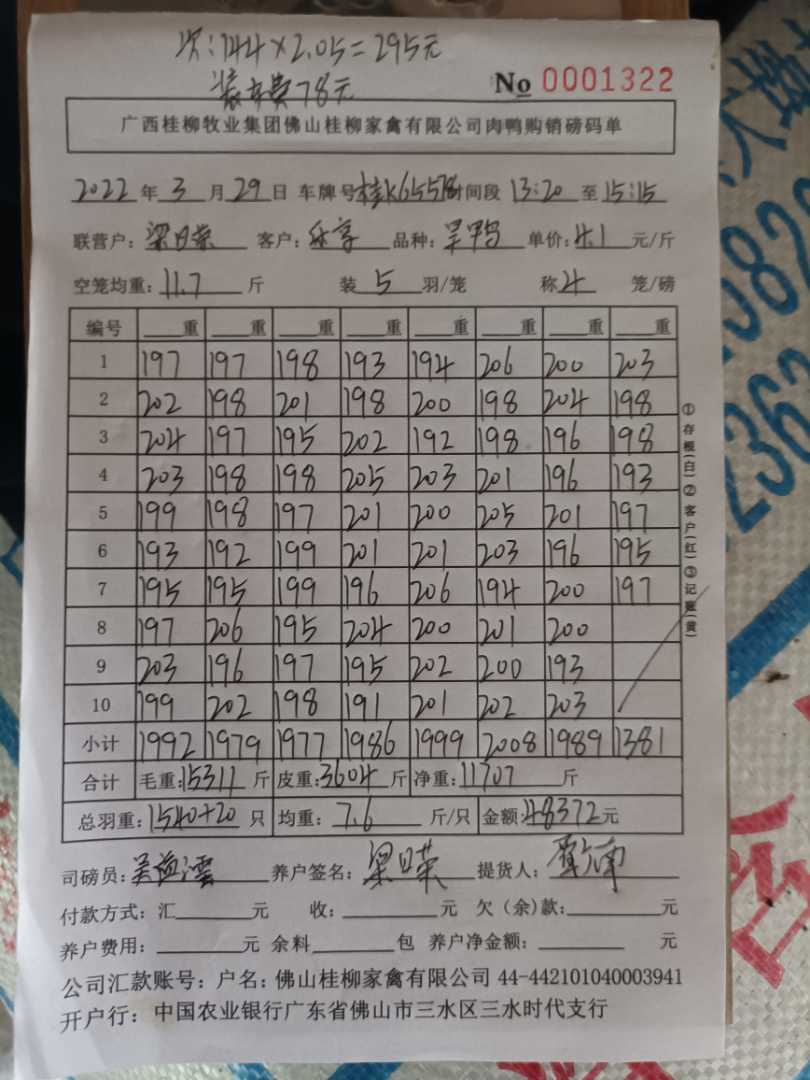 次:144×2.05=295元
装车费78元
No 0001322
广西桂柳牧业集团佛山桂柳家禽有限公司肉鸭购销磅码单
2022年3月29日 车牌号桂K65578时间段13:20至15:15
联营户:梁日荣 客户:乐享 品种:旱鸭 单价:4.1元/斤
空笼均重:11.7斤 装5羽/笼 称4笼/磅
编号 重 重 重 重 重 重 重 重
1 197 197 198 193 194 206 200 203
2 202 198 201 198 200 198 204 198
3 204 197 195 202 192 198 196 198
4 203 198 198 205 203 201 196 193
5 199 198 197 201 200 205 201 197
6 193 192 199 201 201 203 196 195
7 195 195 199 196 206 194 200 197
8 197 206 195 204 200 201 200
9 203 196 197 195 202 200 193
10 199 202 198 191 201 202 203
小计 1992 1979 1977 1986 1999 2008 1989 1381
合计 毛重:15311斤 皮重:3604斤 净重:11707斤
总羽重:1540+20只 均重:7.6斤/只 金额:48372元
司磅员: 养户签名:梁日荣 提货人:
付款方式:汇 元 收: 元 欠(余)款: 元
养户费用: 元 余料 包 养户净金额: 元
公司汇款账号:户名:佛山桂柳家禽有限公司 44-442101040003941
开户行:中国农业银行广东省佛山市三水区三水时代支行
①存根(白)②客户(红)③记账(黄)